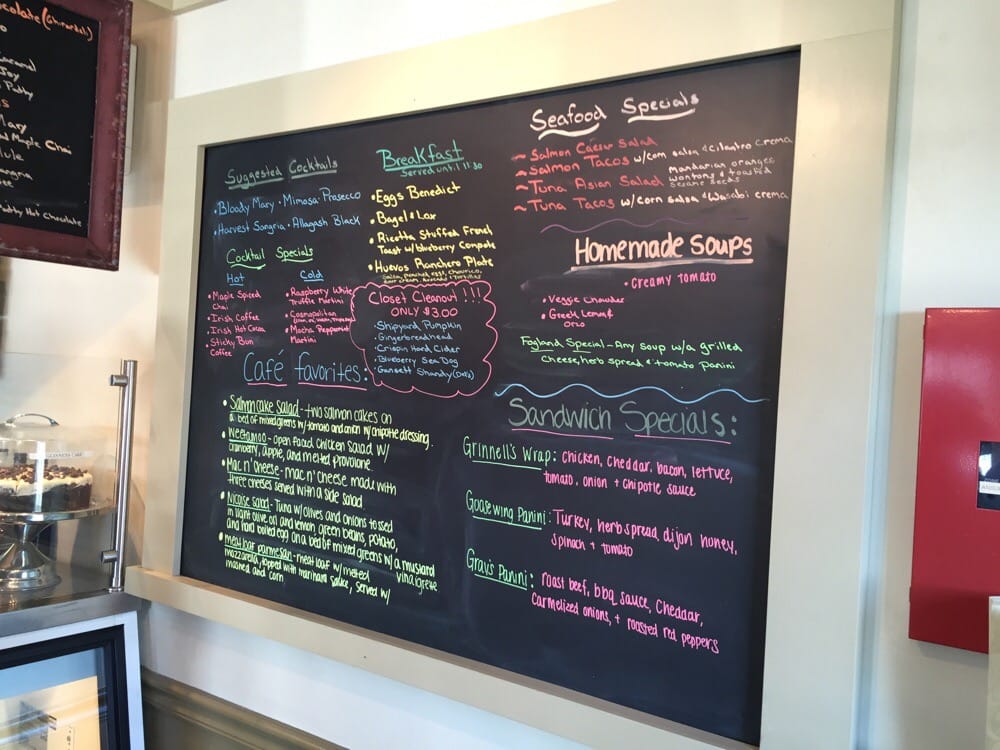 ocolate (Ghirardeli)
Joy
Mary
Maple Chai
Hot Chocolate
Suggested Cocktails
• Bloody Mary • Mimosa • Prosecco
• Harvest Sangria • Allagash Black
Cocktail Specials
Hot
• Maple Spiced
Chai
• Irish Coffee
• Irish Hot Cocoa
• Sticky Bun
Coffee
Cold
• Raspberry White
Truffle Martini
• Cosmopolitan
• Mocha Peppermint
Martini
Breakfast
Served until 11:30
• Eggs Benedict
• Bagel & Lox
• Ricotta Stuffed French
Toast w/ blueberry Compote
• Huevos Ranchero Plate
Salsa, poached egg, chourico,
sour cream, avocado & tortillas
Closet Cleanout!!!
ONLY $3.00
• Shipyard Pumpkin
• Gingerbreadhead
• Crispin Hard Cider
• Blueberry Sea Dog
• Gansett Shandy (Del's)
Café favorites:
• Salmon cake salad - two salmon cakes on
a bed of mixed greens w/ tomato and onion w/ chipotle dressing.
• Weetamoo - open faced chicken salad w/
cranberry, apple, and melted provolone
• Mac n' cheese - mac n' cheese made with
three cheeses served with a side salad
• Nicoise salad - Tuna w/ olives and onions tossed
in light olive oil and lemon, green beans, potato,
and hard boiled egg on a bed of mixed greens w/ a mustard
vinaigrette
• meat loaf parmesan - meat loaf w/ melted
mozzarella, topped with marinara sauce, served w/
mashed and corn
Seafood Specials
~ Salmon Caesar Salad
~ Salmon Tacos w/ corn salsa & cilantro crema
~ Tuna Asian Salad mandarian oranges
wontons & toasted
sesame seeds
~ Tuna Tacos w/ corn salsa & wasabi crema
Homemade Soups
• creamy tomato
• Veggie Chowder
• Greek Lemon &
Orzo
Fogland Special - Any soup w/ a grilled
Cheese, herb spread & tomato panini
Sandwich Specials:
Grinnell's Wrap: chicken, cheddar, bacon, lettuce,
tomato, onion + chipotle sauce
Goosewing Panini: Turkey, herb spread, dijon honey,
spinach + tomato
Gray's Panini: roast beef, bbq sauce, cheddar,
carmelized onions, + roasted red peppers